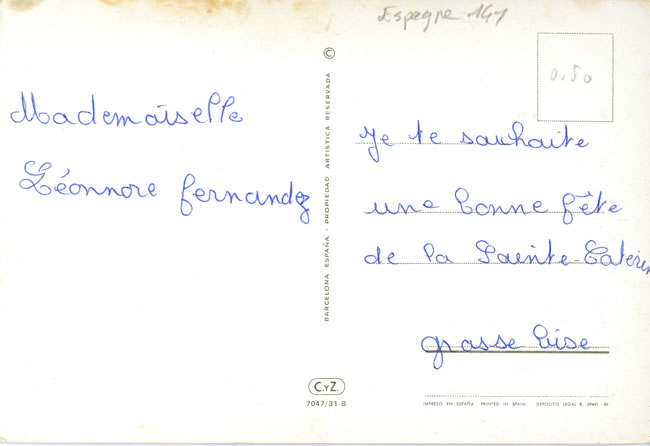 Espagne 141
0.50
Mademoiselle
Léonnore fernandez
©
BARCELONA ESPAÑA - PROPIEDAD ARTISTICA RESERVADA
Je te souhaite
une bonne fête
de la Sainte-Catérin
grosse bise
C.YZ.
7047/31-B
IMPRESO EN ESPAÑA PRINTED IN SPAIN DEPOSITO LEGAL B.